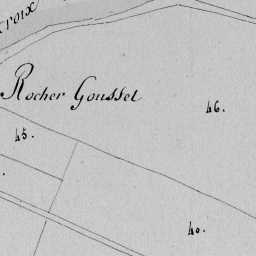 croix
Rocher Gousset
46.
45.
40.